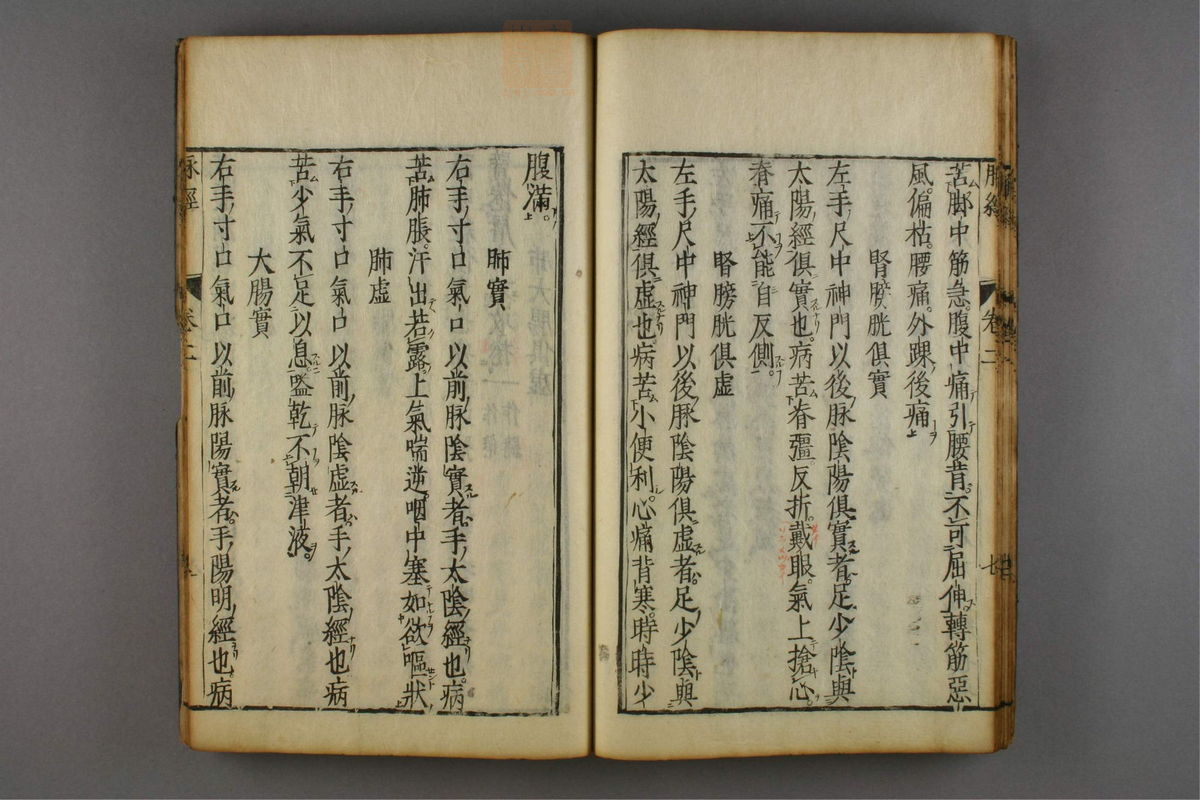 苦脚中筋急腹中痛引腰背不可屈伸轉筋惡
風偏枯腰痛外踝後痛
腎膀胱俱實
左手尺中神門以後脉陰陽俱實者足少陰與
太陽經俱實也病苦脊彊反折戴眼氣上搶心
脊痛不能自反側
腎膀胱俱虛
左手尺中神門以後脉陰陽俱虛者足少陰與
太陽經俱虛也病苦小便利心痛背寒時時少
腹滿
肺實
右手寸口氣口以前脉陰實者手太陰經也病
苦肺脹汗出若露上氣喘逆咽中塞如欲嘔狀
肺虛
右手寸口氣口以前脉陰虛者手太陰經也病
苦少氣不足以息嗌乾不朝津液
大腸實
右手寸口氣口以前脉陽實者手陽明經也病
脉經
卷二